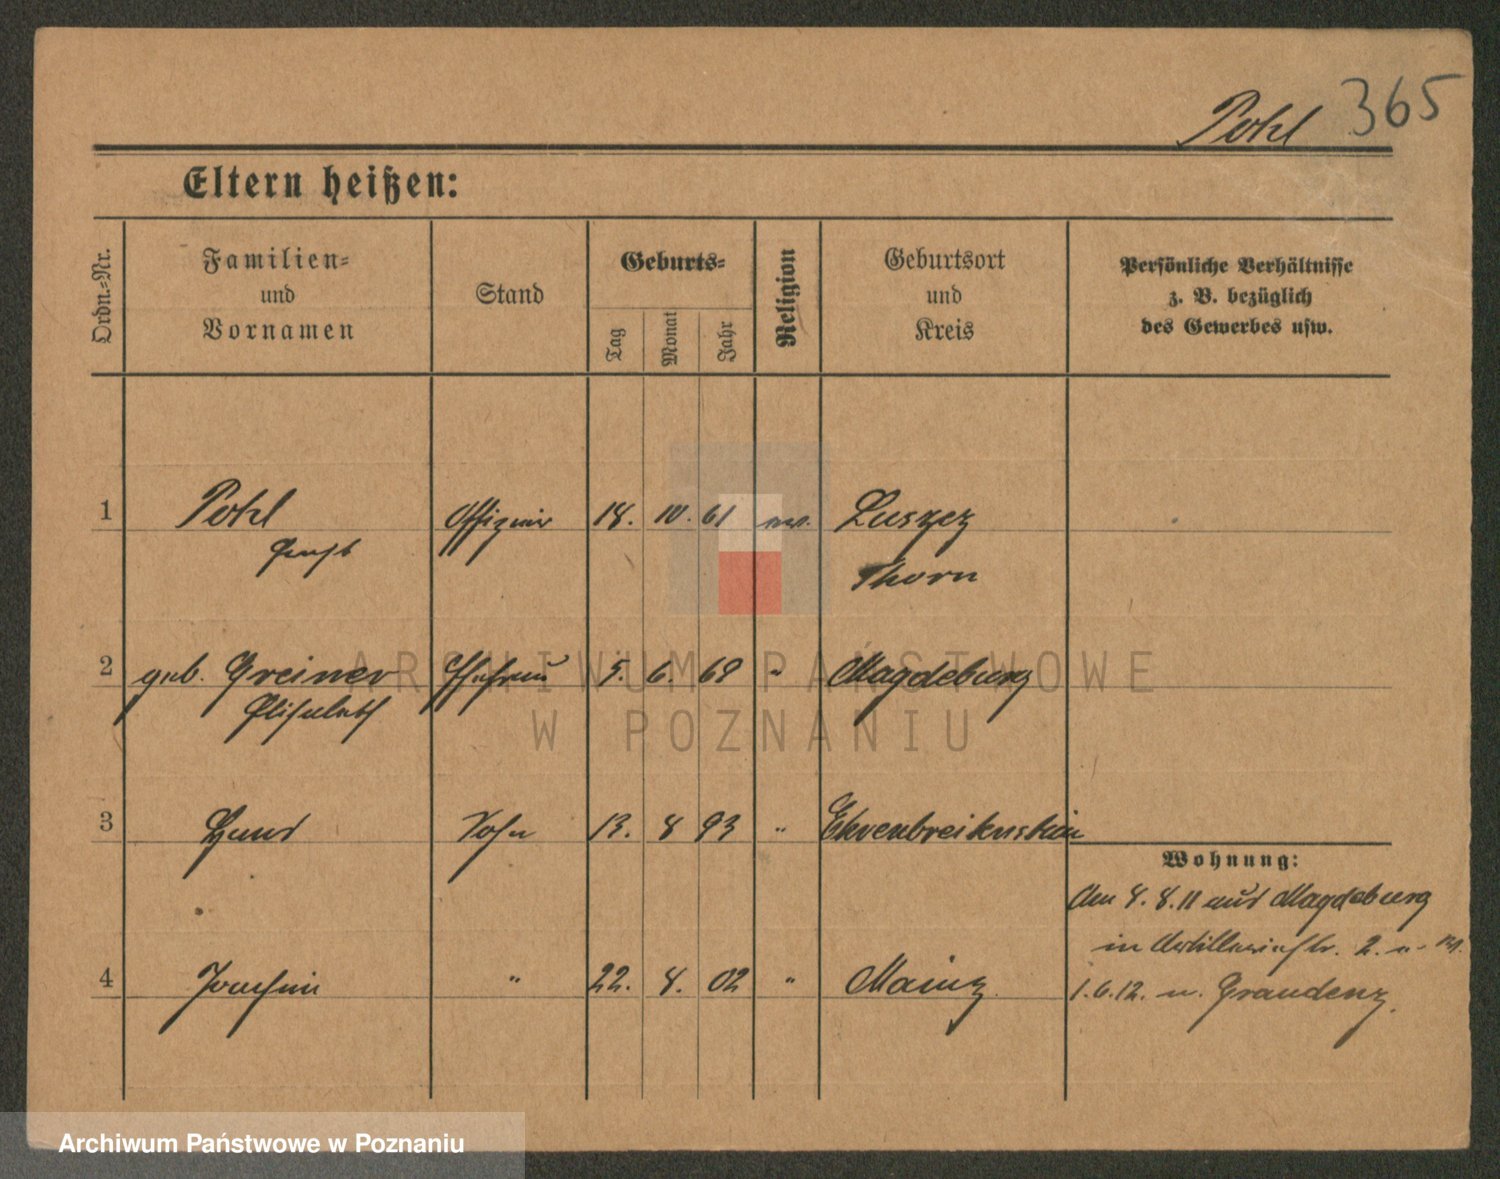 Pohl 365
Eltern heißen:
Ordn.-Nr.
Familien-
und
Vornamen
Stand
Geburts-
Tag
Monat
Jahr
Religion
Geburtsort
und
Kreis
Persönliche Verhältnisse
z. B. bezüglich
des Gewerbes usw.
1 Pohl Offizier 18. 10. 61 ev.
Ernst Thorn
2 geb. Greiner Ehefrau 5. 6. 68 " Magdeburg
Elisabeth
3 Hans Sohn 13. 8 93 " Ehrenbreitenstein
Wohnung:
Am 8. 8. 11 aus Magdeburg
in Artilleriestr. 2.
4 Joachim " 22. 8. 02 " Mainz
1. 6. 12. n. Graudenz.
ARCHIWUM PAŃSTWOWE
W POZNANIU
Archiwum Państwowe w Poznaniu